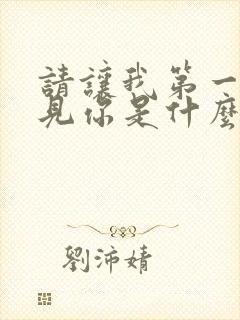 請讓我第一
見你是什麼
劉沛婧